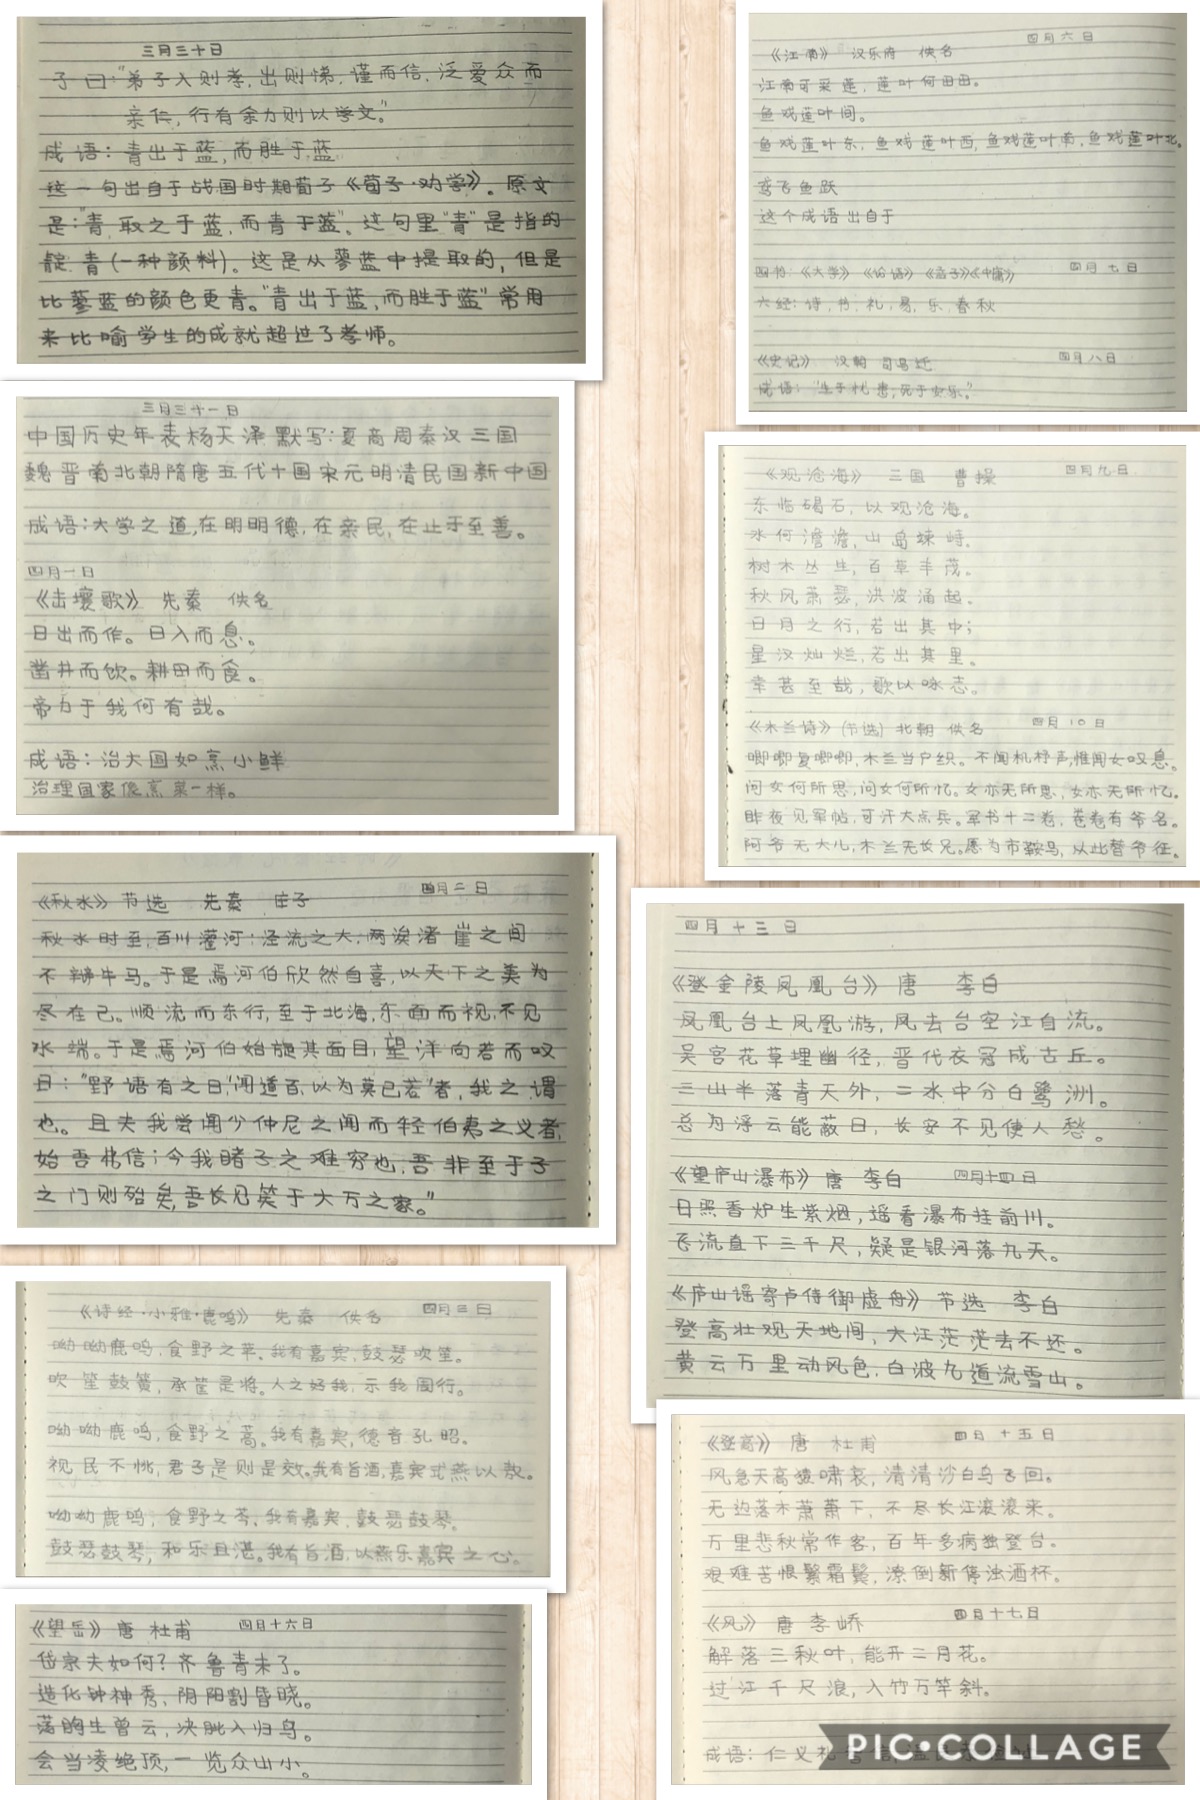 三月三十日
子曰:"弟子入则孝,出则悌,谨而信,泛爱众而
亲仁,行有余力则以学文。"
成语:青出于蓝,而胜于蓝
这一句出自于战国时期荀子《荀子·劝学》。原文
是:"青,取之于蓝,而青于蓝"。这句里"青"是指的
靛青(一种颜料)。这是从蓼蓝中提取的,但是
比蓼蓝的颜色更青。"青出于蓝,而胜于蓝"常用
来比喻学生的成就超过了老师。
三月三十一日
中国历史年表杨天泽默写:夏商周秦汉三国
魏晋南北朝隋唐五代十国宋元明清民国新中国
成语:大学之道,在明明德,在亲民,在止于至善。
四月一日
《击壤歌》 先秦 佚名
日出而作。日入而息。
凿井而饮。耕田而食。
帝力于我何有哉。
成语:治大国如烹小鲜
治理国家像烹菜一样。
四月二日
《秋水》节选 先秦 庄子
秋水时至,百川灌河;泾流之大,两涘渚崖之间
不辩牛马。于是焉河伯欣然自喜,以天下之美为
尽在己。顺流而东行,至于北海,东面而视,不见
水端。于是焉河伯始旋其面目,望洋向若而叹
曰:"野语有之曰'闻道百,以为莫己若'者,我之谓
也。且夫我尝闻少仲尼之闻而轻伯夷之义者,
始吾弗信;今我睹子之难穷也,吾非至于子
之门则殆矣,吾长见笑于大方之家。"
《诗经·小雅·鹿鸣》 先秦 佚名 四月三日
呦呦鹿鸣,食野之苹。我有嘉宾,鼓瑟吹笙。
吹笙鼓簧,承筐是将。人之好我,示我周行。
呦呦鹿鸣,食野之蒿。我有嘉宾,德音孔昭。
视民不恌,君子是则是效。我有旨酒,嘉宾式燕以敖。
呦呦鹿鸣,食野之芩。我有嘉宾,鼓瑟鼓琴。
鼓瑟鼓琴,和乐且湛。我有旨酒,以燕乐嘉宾之心。
《望岳》唐 杜甫 四月十六日
岱宗夫如何?齐鲁青未了。
造化钟神秀,阴阳割昏晓。
荡胸生曾云,决眦入归鸟。
会当凌绝顶,一览众山小。
四月六日
《江南》 汉乐府 佚名
江南可采莲,莲叶何田田。
鱼戏莲叶间。
鱼戏莲叶东,鱼戏莲叶西,鱼戏莲叶南,鱼戏莲叶北。
鸢飞鱼跃
这个成语出自于
四书:《大学》《论语》《孟子》《中庸》 四月七日
六经:诗,书,礼,易,乐,春秋
《史记》 汉朝 司马迁 四月八日
成语:"生于忧患,死于安乐。"
《观沧海》 三国 曹操 四月九日
东临碣石,以观沧海。
水何澹澹,山岛竦峙。
树木丛生,百草丰茂。
秋风萧瑟,洪波涌起。
日月之行,若出其中;
星汉灿烂,若出其里。
幸甚至哉,歌以咏志。
《木兰诗》(节选) 北朝 佚名 四月10日
唧唧复唧唧,木兰当户织。不闻机杼声,惟闻女叹息。
问女何所思,问女何所忆。女亦无所思,女亦无所忆。
昨夜见军帖,可汗大点兵。军书十二卷,卷卷有爷名。
阿爷无大儿,木兰无长兄。愿为市鞍马,从此替爷征。
四月十三日
《登金陵凤凰台》 唐 李白
凤凰台上凤凰游,凤去台空江自流。
吴宫花草埋幽径,晋代衣冠成古丘。
三山半落青天外,二水中分白鹭洲。
总为浮云能蔽日,长安不见使人愁。
《望庐山瀑布》唐 李白 四月十四日
日照香炉生紫烟,遥看瀑布挂前川。
飞流直下三千尺,疑是银河落九天。
《庐山谣寄卢侍御虚舟》节选 李白
登高壮观天地间,大江茫茫去不还。
黄云万里动风色,白波九道流雪山。
《登高》 唐 杜甫 四月十五日
风急天高猿啸哀,清清沙白鸟飞回。
无边落木萧萧下,不尽长江滚滚来。
万里悲秋常作客,百年多病独登台。
艰难苦恨繁霜鬓,潦倒新停浊酒杯。
《风》 唐 李峤 四月十七日
解落三秋叶,能开二月花。
过江千尺浪,入竹万竿斜。
成语:仁义礼
PIC•COLLAGE